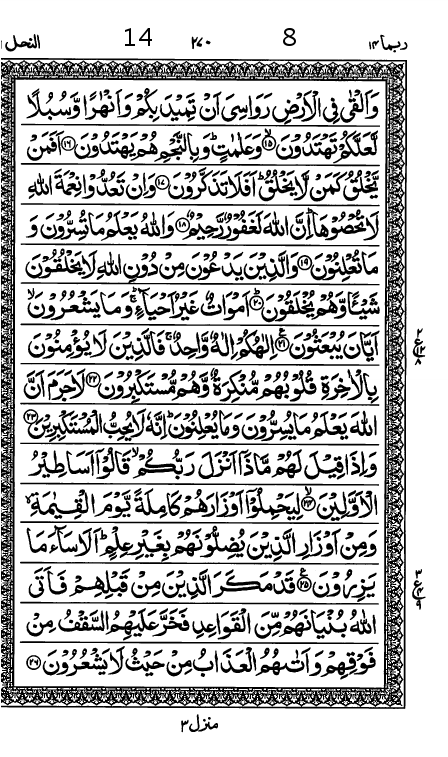 النحل ١٦ 14 ٢٧٠ 8 ربما ١٤
وَاَلْقٰى فِى الْاَرْضِ رَوَاسِىَ اَنْ تَمِيْدَ بِكُمْ وَاَنْهٰرًا وَّسُبُلًا
لَّعَلَّكُمْ تَهْتَدُوْنَ ۙ﴿۱۵﴾ وَعَلٰمٰتٍ ؕ وَبِالنَّجْمِ هُمْ يَهْتَدُوْنَ ﴿۱۶﴾ اَفَمَنْ
يَّخْلُقُ كَمَنْ لَّا يَخْلُقُ ؕ اَفَلَا تَذَكَّرُوْنَ ﴿۱۷﴾ وَاِنْ تَعُدُّوْا نِعْمَةَ اللّٰهِ
لَا تُحْصُوْهَا ؕ اِنَّ اللّٰهَ لَغَفُوْرٌ رَّحِيْمٌ ﴿۱۸﴾ وَاللّٰهُ يَعْلَمُ مَا تُسِرُّوْنَ وَ
مَا تُعْلِنُوْنَ ﴿۱۹﴾ وَالَّذِيْنَ يَدْعُوْنَ مِنْ دُوْنِ اللّٰهِ لَا يَخْلُقُوْنَ
شَيْـًٔا وَّهُمْ يُخْلَقُوْنَ ؕ﴿۲۰﴾ اَمْوَاتٌ غَيْرُ اَحْيَآءٍ ۚ وَمَا يَشْعُرُوْنَ ۙ
اَيَّانَ يُبْعَثُوْنَ ﴿۲۱﴾ اِلٰهُكُمْ اِلٰهٌ وَّاحِدٌ ۚ فَالَّذِيْنَ لَا يُؤْمِنُوْنَ
بِالْاٰخِرَةِ قُلُوْبُهُمْ مُّنْكِرَةٌ وَّهُمْ مُّسْتَكْبِرُوْنَ ﴿۲۲﴾ لَا جَرَمَ اَنَّ
اللّٰهَ يَعْلَمُ مَا يُسِرُّوْنَ وَمَا يُعْلِنُوْنَ ؕ اِنَّهٗ لَا يُحِبُّ الْمُسْتَكْبِرِيْنَ ﴿۲۳﴾
وَاِذَا قِيْلَ لَهُمْ مَّاذَاۤ اَنْزَلَ رَبُّكُمْ ۙ قَالُوْۤا اَسَاطِيْرُ
الْاَوَّلِيْنَ ۙ﴿۲۴﴾ لِيَحْمِلُوْۤا اَوْزَارَهُمْ كَامِلَةً يَّوْمَ الْقِيٰمَةِ ۙ
وَمِنْ اَوْزَارِ الَّذِيْنَ يُضِلُّوْنَهُمْ بِغَيْرِ عِلْمٍ ؕ اَلَا سَآءَ مَا
يَزِرُوْنَ ﴿۲۵﴾ قَدْ مَكَرَ الَّذِيْنَ مِنْ قَبْلِهِمْ فَاَتَى
اللّٰهُ بُنْيَانَهُمْ مِّنَ الْقَوَاعِدِ فَخَرَّ عَلَيْهِمُ السَّقْفُ مِنْ
فَوْقِهِمْ وَاَتٰىهُمُ الْعَذَابُ مِنْ حَيْثُ لَا يَشْعُرُوْنَ ﴿۲۶﴾
منزل ٣